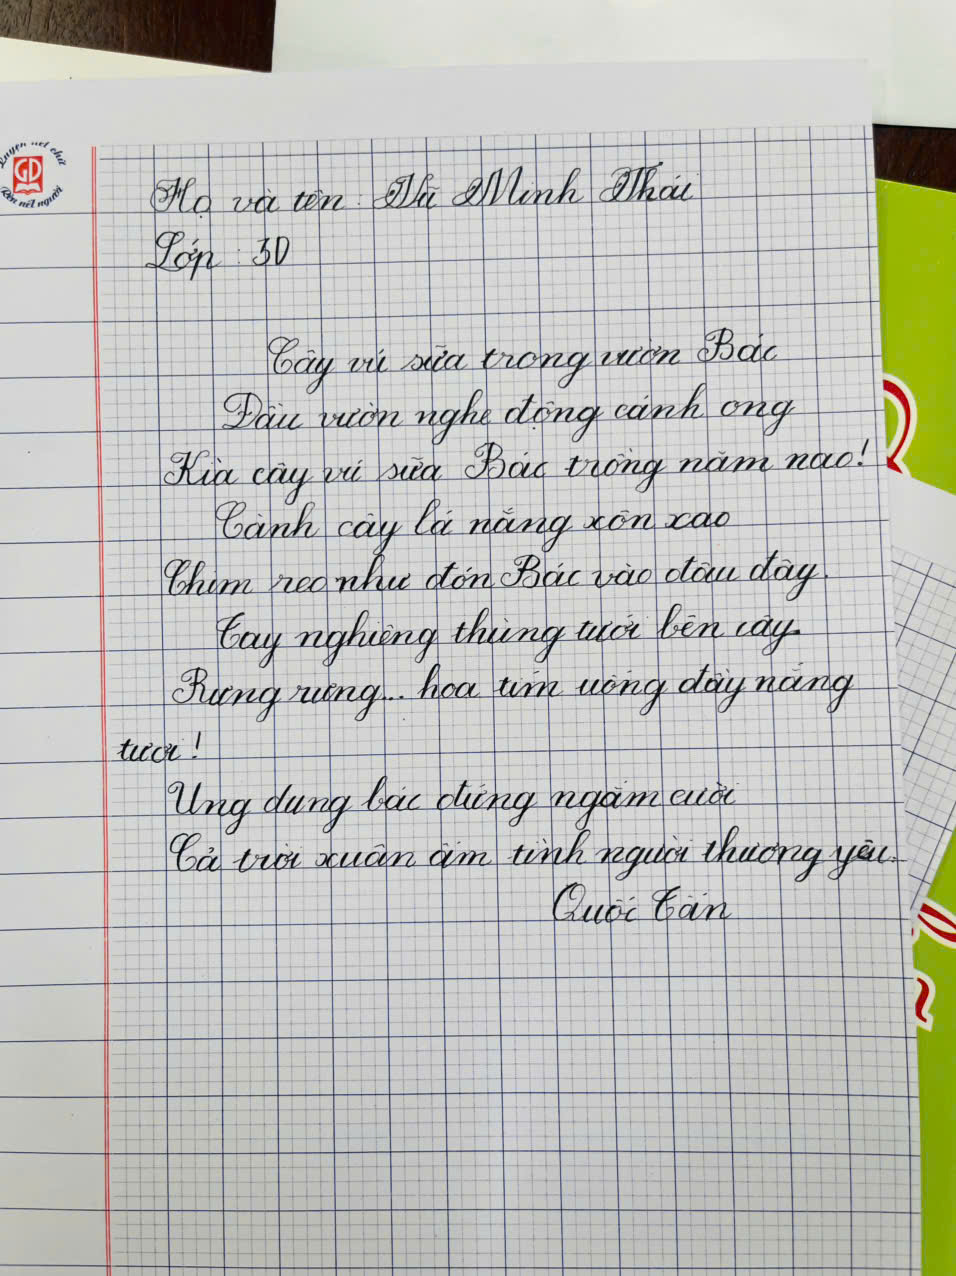 Luyện nét chữ
GD
Rèn nết người
Họ và tên : Vũ Minh Thái
Lớp : 3D
Cây vú sữa trong vườn Bác
Đầu vườn nghe động cánh ong
Kìa cây vú sữa Bác trồng năm nao!
Cành cây lá nắng xôn xao
Chim reo như đón Bác vào đâu đây.
Tay nghiêng thùng tưới bên cây.
Rưng rưng... hoa tím uống đầy nắng
tươi!
Ung dung bác đứng ngắm cười
Cả trời xuân ấm tình người thương yêu.
Quốc Tấn